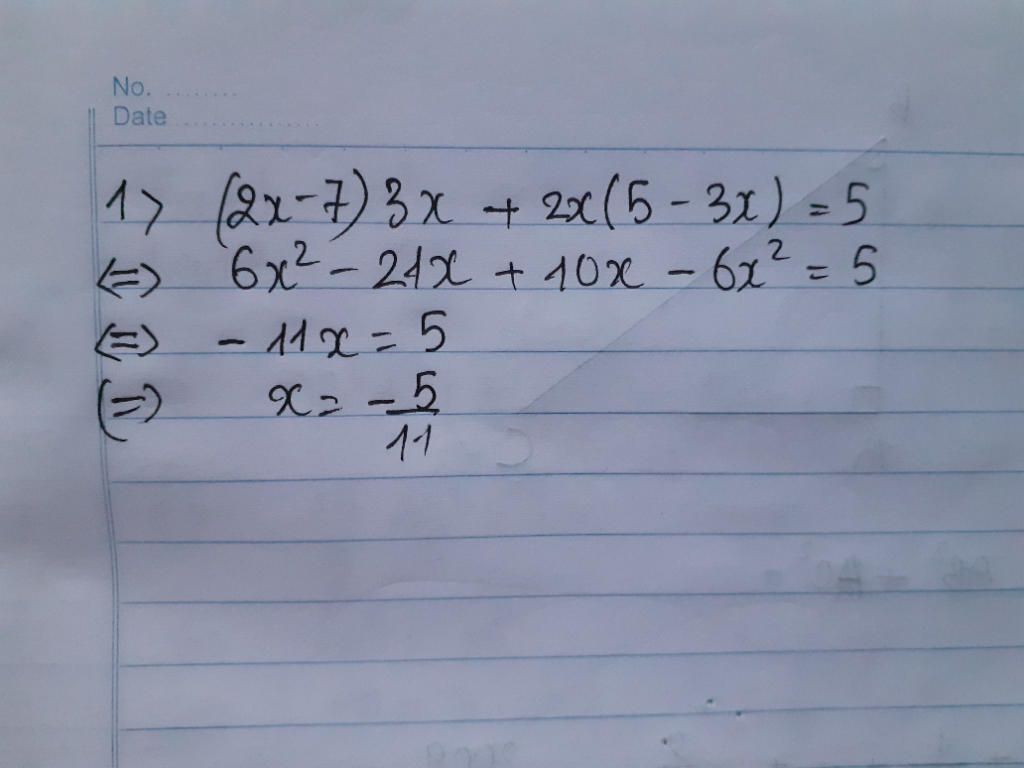 No. ........
Date ................
1> (2x-7)3x + 2x(5-3x) = 5
<=> 6x² - 21x + 10x - 6x² = 5
<=> - 11x = 5
(=> x = -5/11